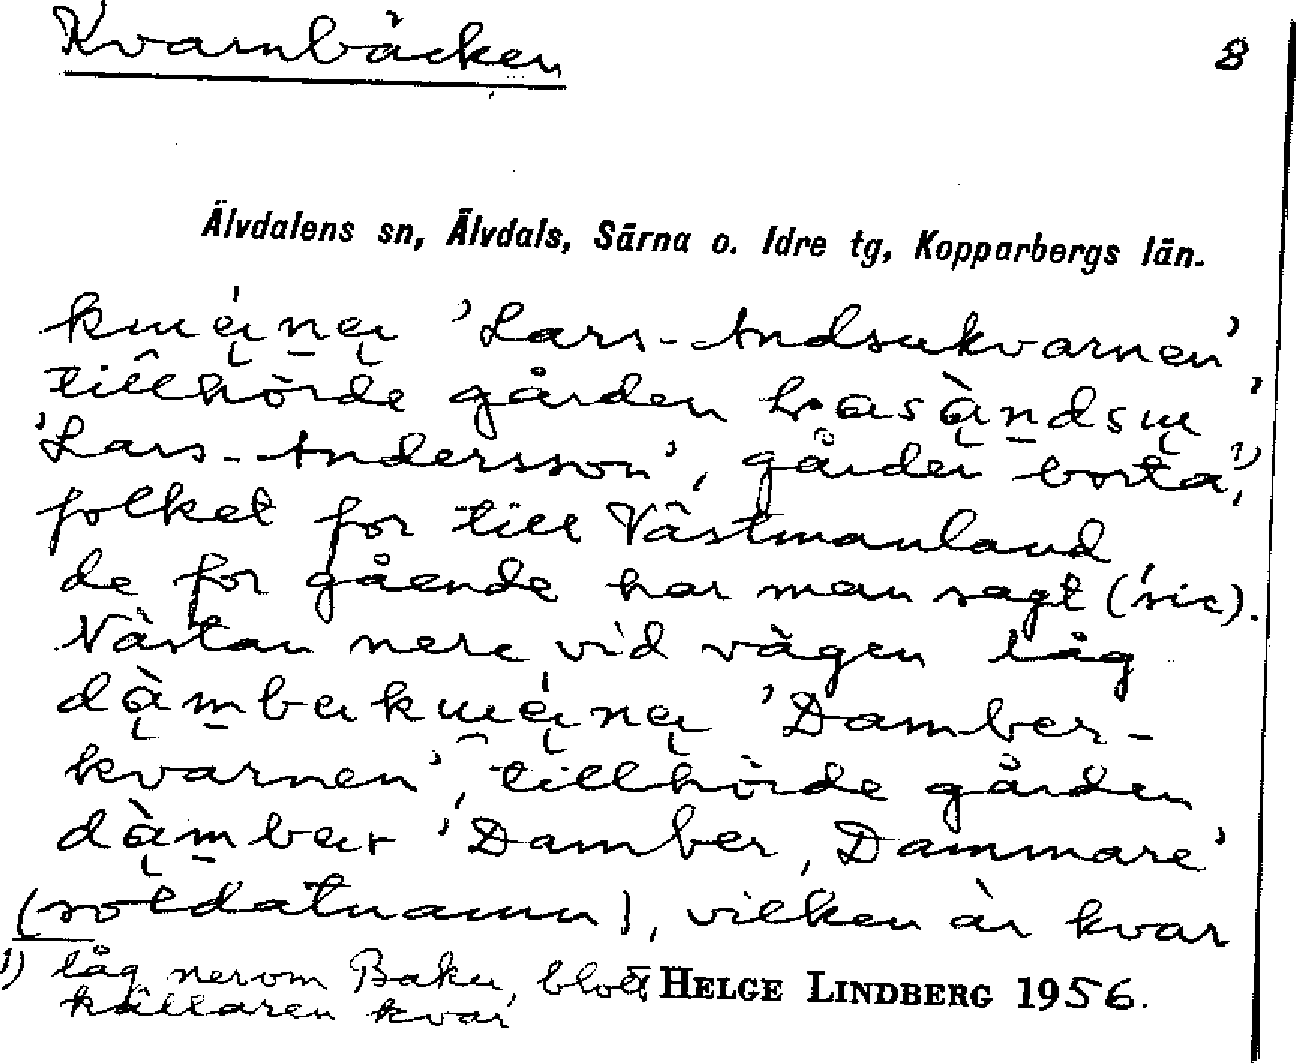 Kvarnbäcken 8
Älvdalens sn, Älvdals, Särna o. Idre tg, Kopparbergs län.
'Lars-Andsukvarnen'
tillhörde gården
'Lars-Andersson', gården borta,¹⁾
folket for till Västmanland
de for gående har man sagt (sic).
Nästan nere vid vägen låg
'Damber-
kvarnen', tillhörde gården
'Damber, Dammare'
(soldatnamn), vilken är kvar
1) låg nerom Baku, blott HELGE LINDBERG 1956.
källaren kvar